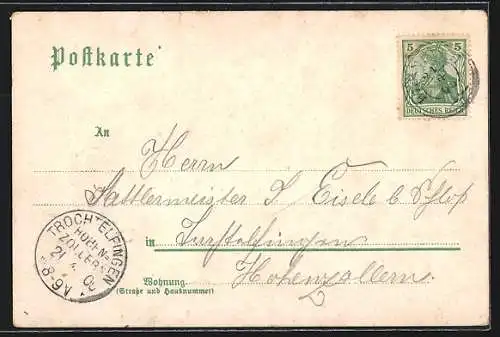 Postkarte
5 5
DEUTSCHES REICH
An
Herrn
Sattlermeister J. Eisele b. Schloß
in Trochtelfingen
Wohnung
(Straße und Hausnummer)
Hohenzollern.
TROCHTELFINGEN
HOHEN-
ZOLLERN
21